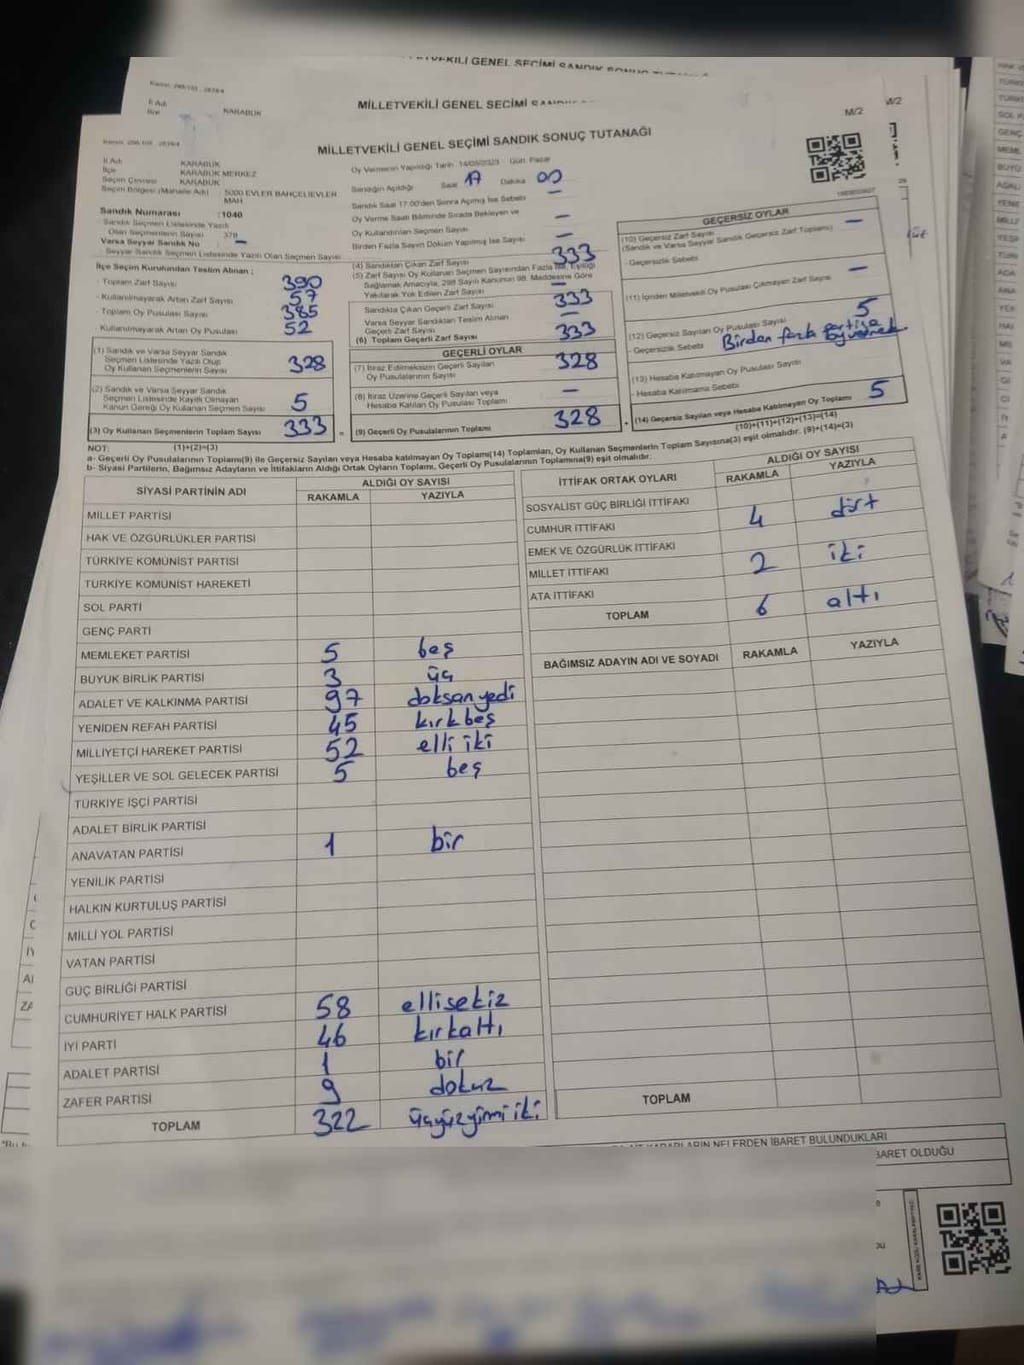 MİLLETVEKİLİ GENEL SEÇİMİ
M/2
M/2
MİLLETVEKİLİ GENEL SEÇİMİ SANDIK SONUÇ TUTANAĞI
İl Adı KARABÜK
İlçe KARABÜK MERKEZ
Seçim Çevresi KARABÜK
Seçim Bölgesi /Mahalle Adı) 5000 EVLER BAHÇELİEVLER MAH
Sandık Numarası : 1040
Sandık Seçmen Listesinde Yazılı
Olan Seçmenlerin Sayısı 378
Varsa Seyyar Sandık No –
Seyyar Sandık Seçmen Listesinde Yazılı Olan Seçmen Sayısı
Oy Vermenin Yapıldığı Tarih 14/05/2023 Gün Pazar
Sandığın Açıldığı Saat 17 Dakika 00
Sandık Saat 17:00'den Sonra Açılmış İse Sebebi –
Oy Verme Saati Bitiminde Sırada Bekleyen ve
Oy Kullandırılan Seçmen Sayısı –
Birden Fazla Sayım Döküm Yapılmış İse Sayısı –
İlçe Seçim Kurulundan Teslim Alınan ;
- Toplam Zarf Sayısı 390
- Kullanılmayarak Artan Zarf Sayısı 57
- Toplam Oy Pusulası Sayısı 385
- Kullanılmayarak Artan Oy Pusulası 52
(1) Sandık ve Varsa Seyyar Sandık
Seçmen Listesinde Yazılı Olup
Oy Kullanan Seçmenlerin Sayısı 328
(2) Sandık ve Varsa Seyyar Sandık
Seçmen Listesinde Kayıtlı Olmayan
Kanun Gereği Oy Kullanan Seçmen Sayısı 5
(3) Oy Kullanan Seçmenlerin Toplam Sayısı 333
(4) Sandıktan Çıkan Zarf Sayısı 333
(5) Zarf Sayısı Oy Kullanan Seçmen Sayısından Fazla İse, Eşitliği
Sağlamak Amacıyla, 298 Sayılı Kanunun 98. Maddesine Göre
Yakılarak Yok Edilen Zarf Sayısı –
Sandıkta Çıkan Geçerli Zarf Sayısı 333
Varsa Seyyar Sandıktan Teslim Alınan
Geçerli Zarf Sayısı –
(6) Toplam Geçerli Zarf Sayısı 333
GEÇERLİ OYLAR
(7) İtiraz Edilmeksizin Geçerli Sayılan
Oy Pusulalarının Sayısı 328
(8) İtiraz Üzerine Geçerli Sayılan veya
Hesaba Katılan Oy Pusulası Toplamı –
(9) Geçerli Oy Pusulalarının Toplamı 328
GEÇERSİZ OYLAR
(10) Geçersiz Zarf Sayısı –
(Sandık ve Varsa Seyyar Sandık Geçersiz Zarf Toplamı)
- Geçersizlik Sebebi
(11) İçinden Milletvekili Oy Pusulası Çıkmayan Zarf Sayısı –
(12) Geçersiz Sayılan Oy Pusulası Sayısı 5
- Geçersizlik Sebebi Birden fazla partiye oy vermek
(13) Hesaba Katılmayan Oy Pusulası Sayısı
- Hesaba Katılmama Sebebi
(14) Geçersiz Sayılan veya Hesaba Katılmayan Oy Toplamı 5
(10)+(11)+(12)+(13)=(14)
NOT: (1)+(2)=(3)
a- Geçerli Oy Pusulalarının Toplamı(9) ile Geçersiz Sayılan veya Hesaba katılmayan Oy Toplamı(14) Toplamları, Oy Kullanan Seçmenlerin Toplam Sayısına(3) eşit olmalıdır. (9)+(14)=(3)
b- Siyasi Partilerin, Bağımsız Adayların ve İttifakların Aldığı Ortak Oyların Toplamı, Geçerli Oy Pusulalarının Toplamına(9) eşit olmalıdır.
SİYASİ PARTİNİN ADI ALDIĞI OY SAYISI
RAKAMLA YAZIYLA
MİLLET PARTİSİ
HAK VE ÖZGÜRLÜKLER PARTİSİ
TÜRKİYE KOMÜNİST PARTİSİ
TÜRKİYE KOMÜNİST HAREKETİ
SOL PARTİ
GENÇ PARTİ
MEMLEKET PARTİSİ 5 beş
BÜYÜK BİRLİK PARTİSİ 3 üç
ADALET VE KALKINMA PARTİSİ 97 doksanyedi
YENİDEN REFAH PARTİSİ 45 kırkbeş
MİLLİYETÇİ HAREKET PARTİSİ 52 elli iki
YEŞİLLER VE SOL GELECEK PARTİSİ 5 beş
TÜRKİYE İŞÇİ PARTİSİ
ADALET BİRLİK PARTİSİ
ANAVATAN PARTİSİ 1 bir
YENİLİK PARTİSİ
HALKIN KURTULUŞ PARTİSİ
MİLLİ YOL PARTİSİ
VATAN PARTİSİ
GÜÇ BİRLİĞİ PARTİSİ
CUMHURİYET HALK PARTİSİ 58 ellisekiz
İYİ PARTİ 46 kırkaltı
ADALET PARTİSİ 1 bir
ZAFER PARTİSİ 9 dokuz
TOPLAM 322 üçyüzyirmi iki
İTTİFAK ORTAK OYLARI ALDIĞI OY SAYISI
RAKAMLA YAZIYLA
SOSYALİST GÜÇ BİRLİĞİ İTTİFAKI
CUMHUR İTTİFAKI 4 dört
EMEK VE ÖZGÜRLÜK İTTİFAKI
MİLLET İTTİFAKI 2 iki
ATA İTTİFAKI
TOPLAM 6 altı
BAĞIMSIZ ADAYIN ADI VE SOYADI RAKAMLA YAZIYLA
TOPLAM
KARARLARIN NELERDEN İBARET BULUNDUKLARI
BARET OLDUĞU